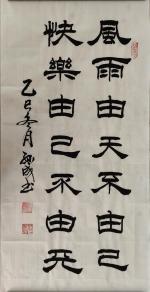 風雨由天不由己
快樂由己不由天
乙巳冬月